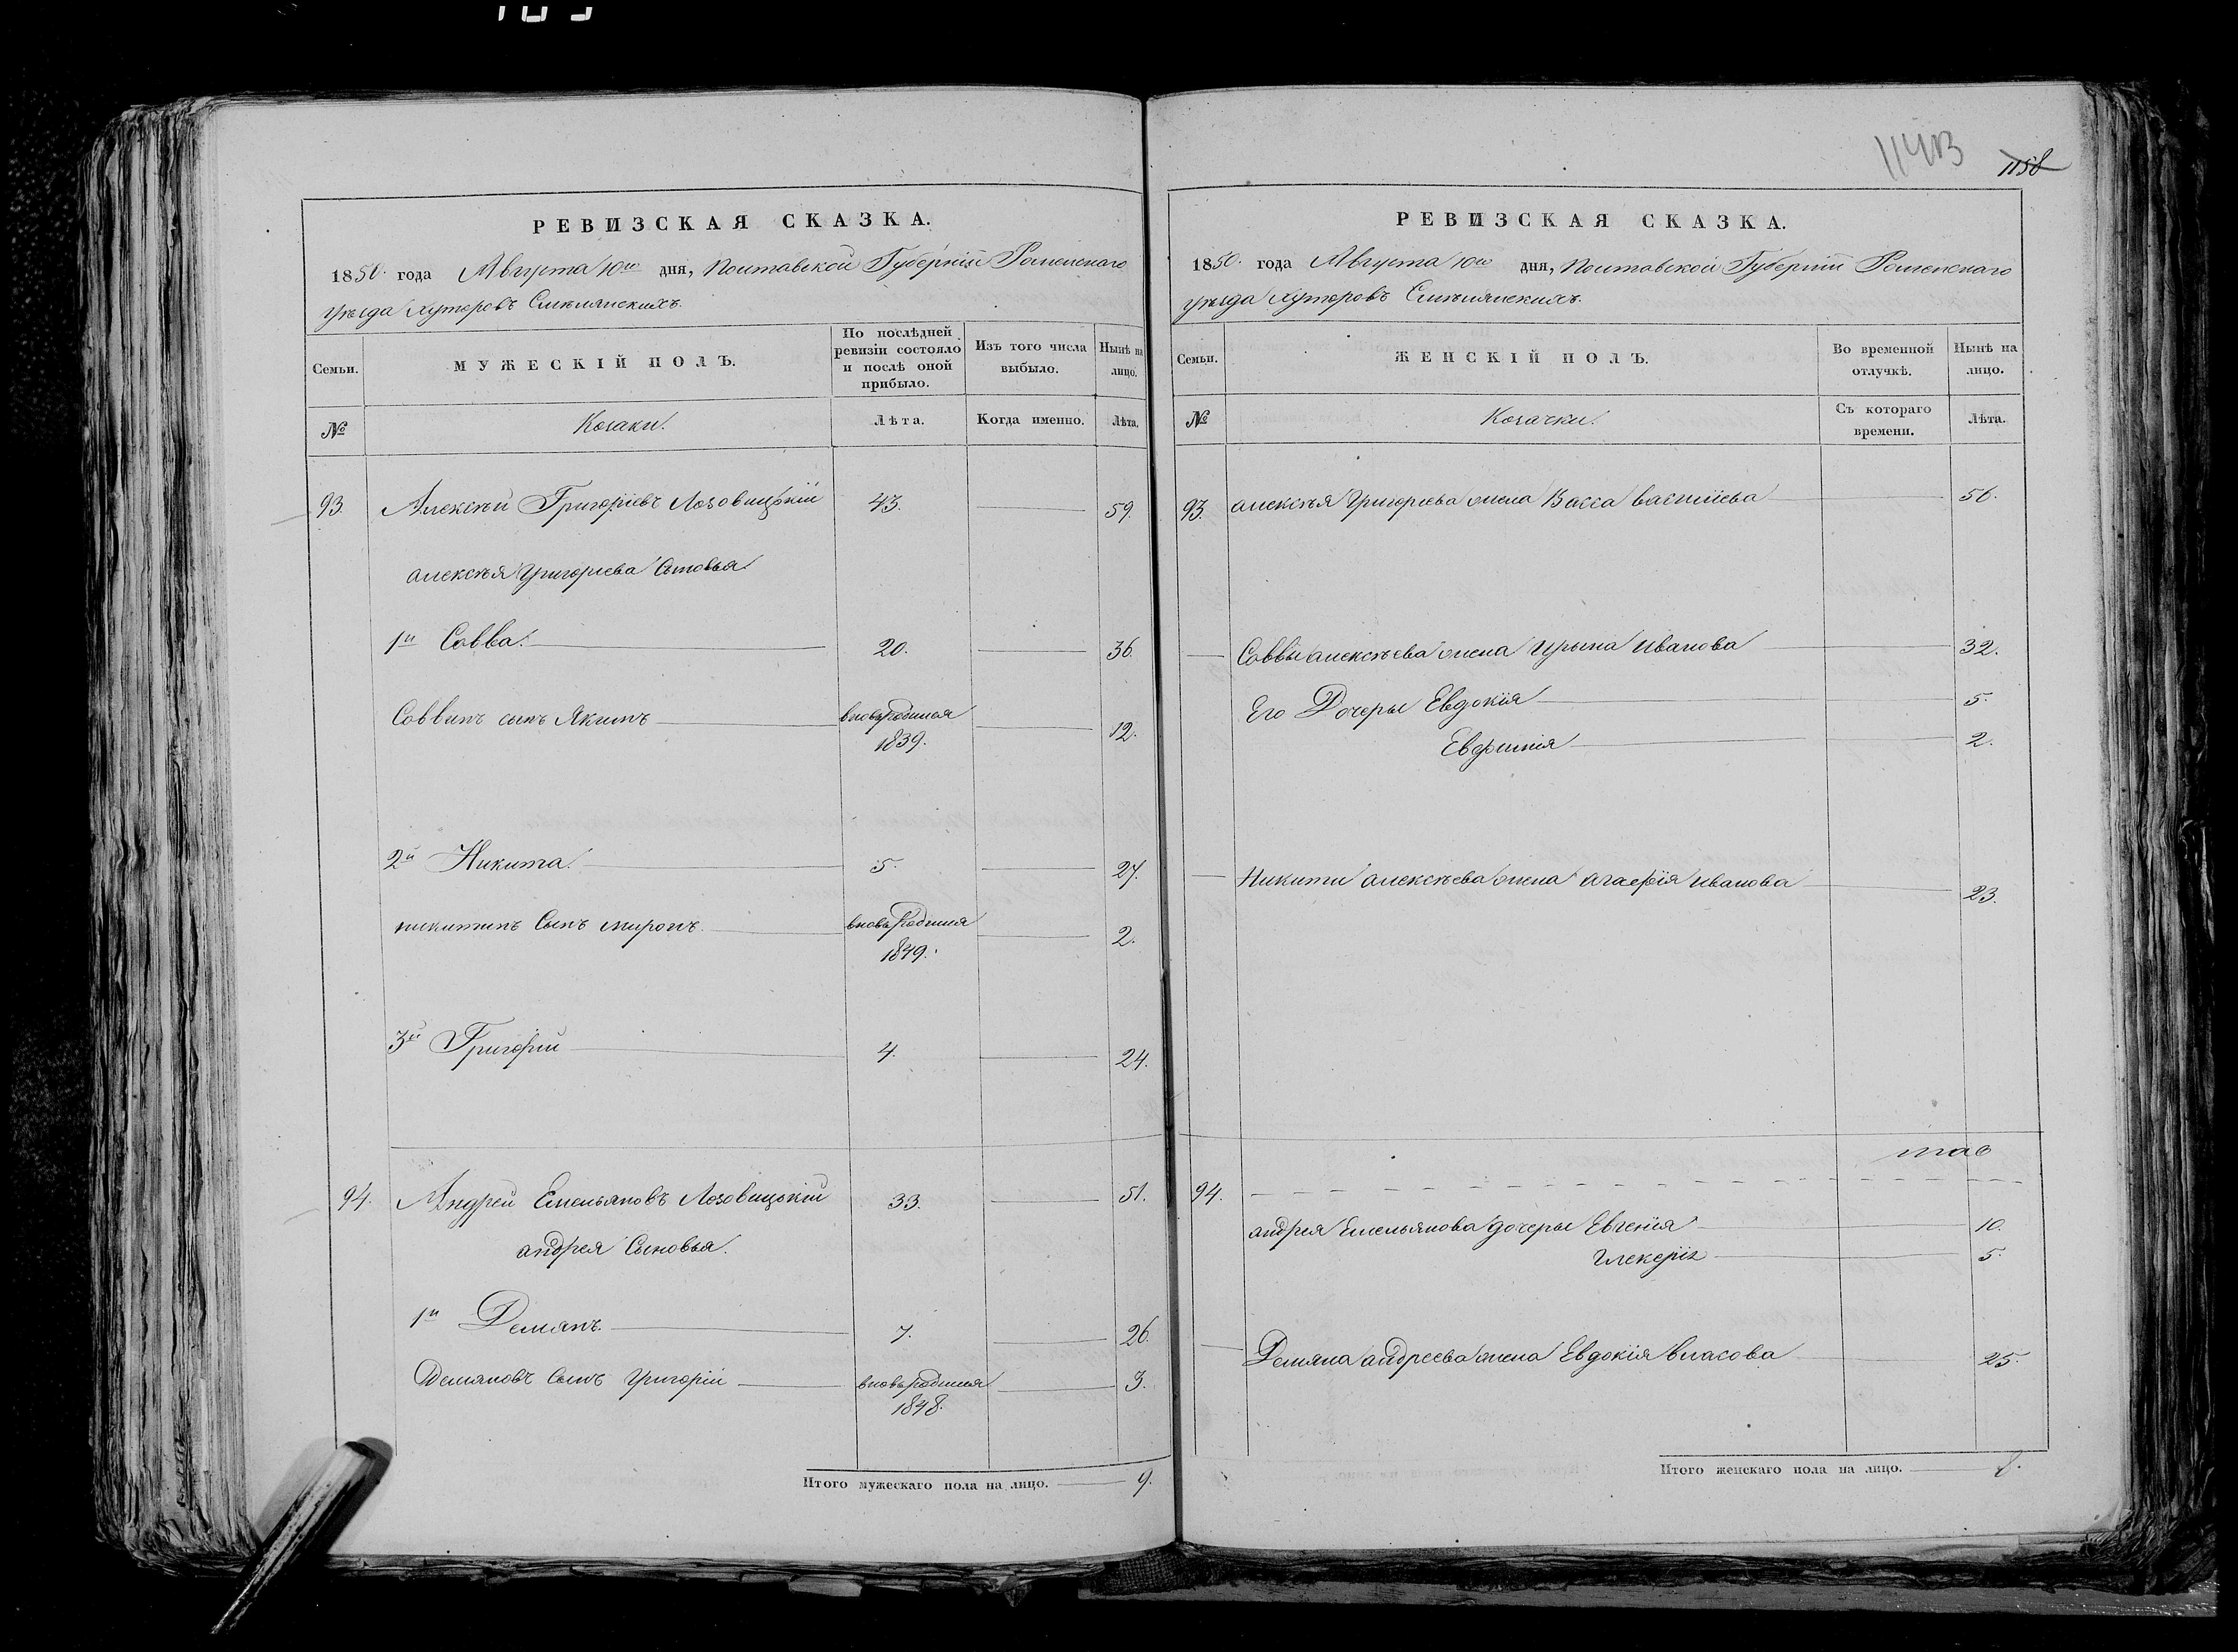 114В
1158
РЕВИЗСКАЯ СКАЗКА.
1850. года Августа 10го дня, Полтавской Губерніи Роменскаго
уѣзда Хуторовъ
Семьи.
МУЖЕСКІЙ ПОЛЪ.
По послѣдней ревизіи состояло и послѣ оной прибыло.
Изъ того числа выбыло.
Нынѣ на лицо.
№
Козаки.
Лѣта.
Когда именно.
Лѣта.
93. Алексѣй Григоріевъ Лозовицкій 43. 59.
алексѣя Григорьева Сыновья.
1й Савва. 20. 36.
Саввинъ сынъ Якимъ вновьрожденъ 12.
1839.
2й Никита. 5. 27.
никитинъ Сынъ миронъ. 2.
1849.
3й Григорій 4. 24.
94. Андрей Емельяновъ Лозовицкій 33. 51.
андрея Сыновья.
1й Демянъ. 7. 26.
Демяновъ Сынъ Григорій 3.
1848.
Итого мужескаго пола на лицо. 9.
РЕВИЗСКАЯ СКАЗКА.
1850. года Августа 10го дня, Полтавской Губерніи Роменскаго
уѣзда Хуторовъ
Семьи.
ЖЕНСКІЙ ПОЛЪ.
Во временной отлучкѣ.
Нынѣ на лицо.
№
Козачки.
Съ котораго времени.
Лѣта.
93. алексѣя Григорьева жена Васса василіева 56.
Саввы алексѣева жена Ирына Иванова 32.
Его Дочеры Евдокія 5.
2.
Никиты алексѣева жена агафія Иванова 23.
94.
андрея Емельянова дочеры Евгенія 10.
Гликерія 5.
Демяна андреева жена Евдокія власова 25.
Итого женскаго пола на лицо. 8.